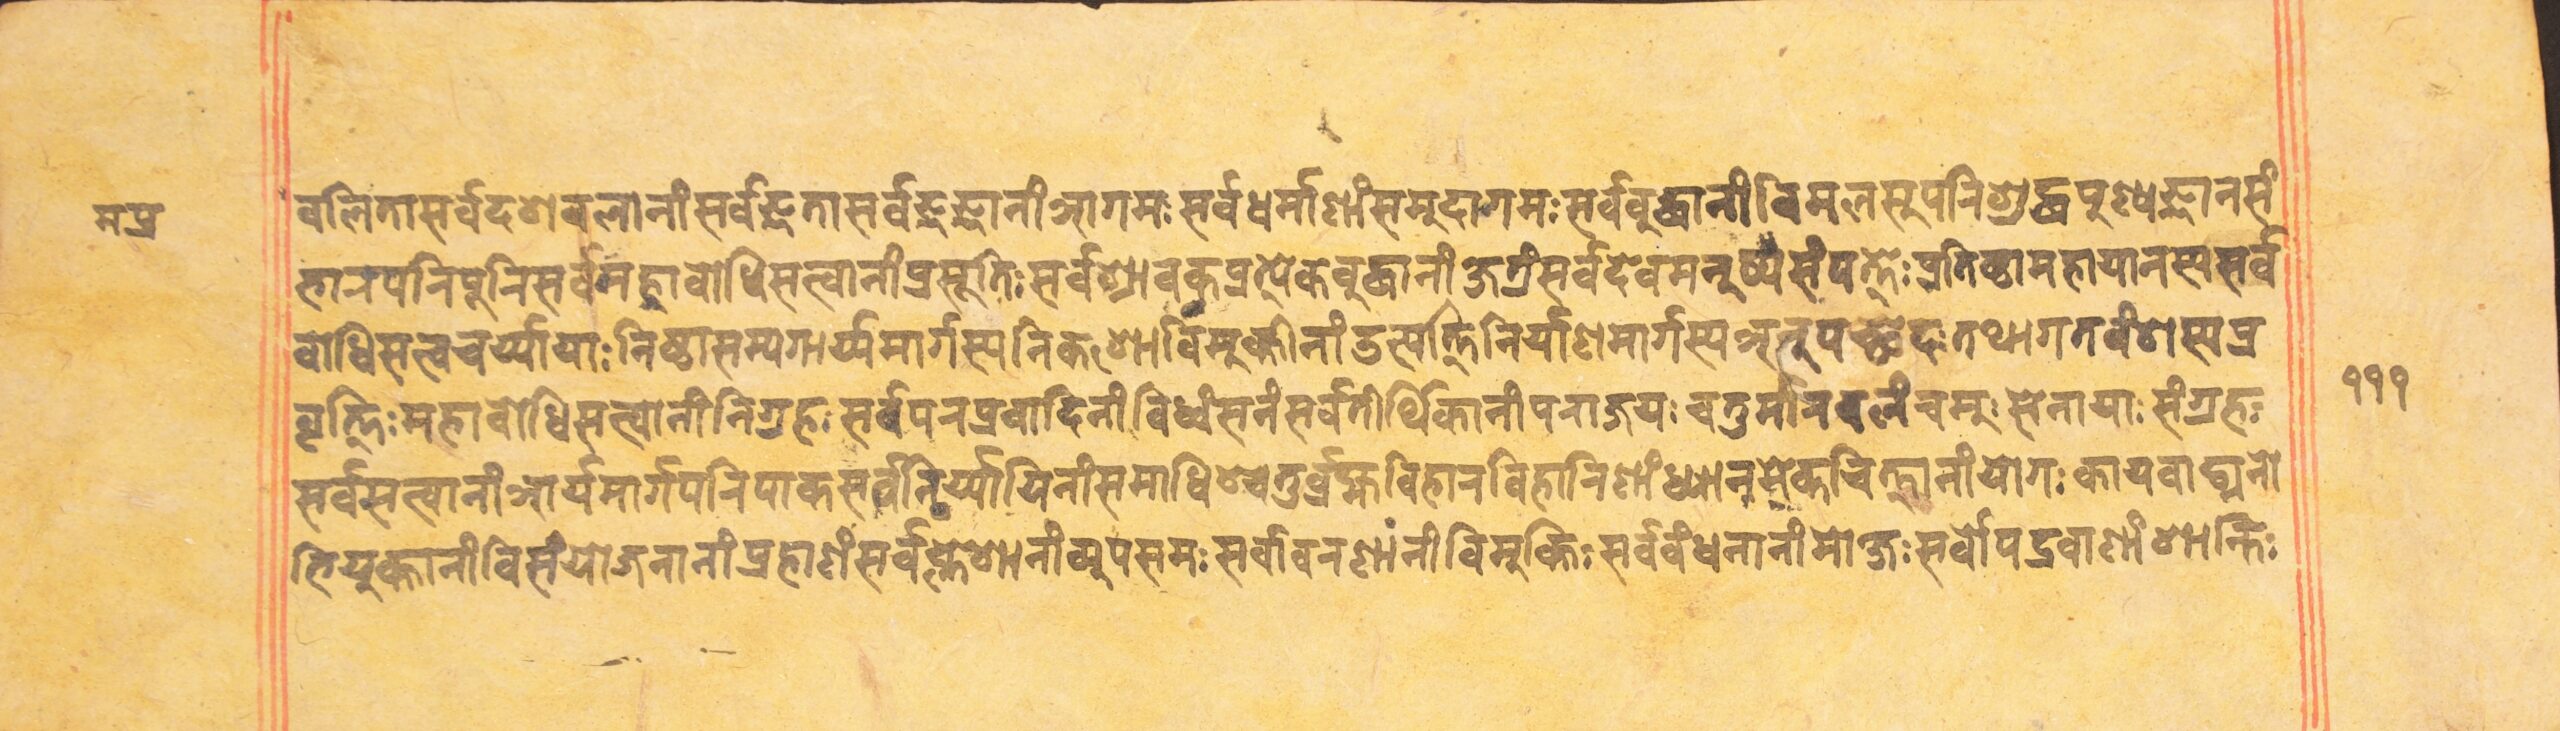 मप्र
वलितासर्वदशबलानांसर्वज्ञतासर्वज्ञज्ञानांआगमःसर्वधर्माणांसमुदागमःसर्वबुद्धानांविमलसुपरिशुद्धपुण्यज्ञानसं
भारपरिपुरिसर्वमहाबोधिसत्वानांप्रसूतिःसर्वश्रावकप्रत्येकबुद्धानांक्षत्रंसर्वदेवमनुष्यसंपत्तेःप्रतिष्ठामहायानस्यसर्व
बोधिसत्वचर्य्यायाःनिष्ठासम्यगार्य्यमार्गस्यनिकशोविमुक्तीनांउत्पत्तिनिर्याणमार्गस्यअनुपच्छेदःतथागतवंशस्यप्र
वृत्तिःमहाबोधिसत्वानांनिग्रहःसर्वपरप्रवादिनांविध्वंसनंसर्वतीर्थिकानांपराजयःचतुर्मारबलंचमुःसेनायाःसंग्रहः
सर्वसत्वानांआर्यमार्गपरिपाकसर्वनिर्य्यायिनांसमाधिश्चतुर्ब्रह्मविहारविहारिणांध्यानमेकचित्तानांयोगःकायवाङ्मनो
भियुक्तानांविसंयोजनानांप्रहाणंसर्वक्लेशानांव्युपसमःसर्वावरणानांविमुक्तिःसर्वबंधनानांमोक्षःसर्वोपद्रवाणांशान्तिः
१११